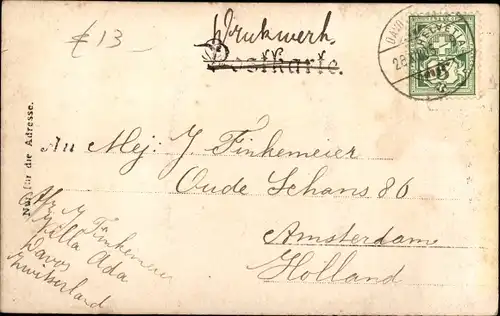 £ 13
Drukwerk
Postkarte.
HELVETIA
DAVOS
28
Nur für die Adresse.
An Mej: J. Finkemeier
Oude Schans 86
Amsterdam
Holland
Afz J. Finkemeier
Villa Ada
Davos
Zwitserland